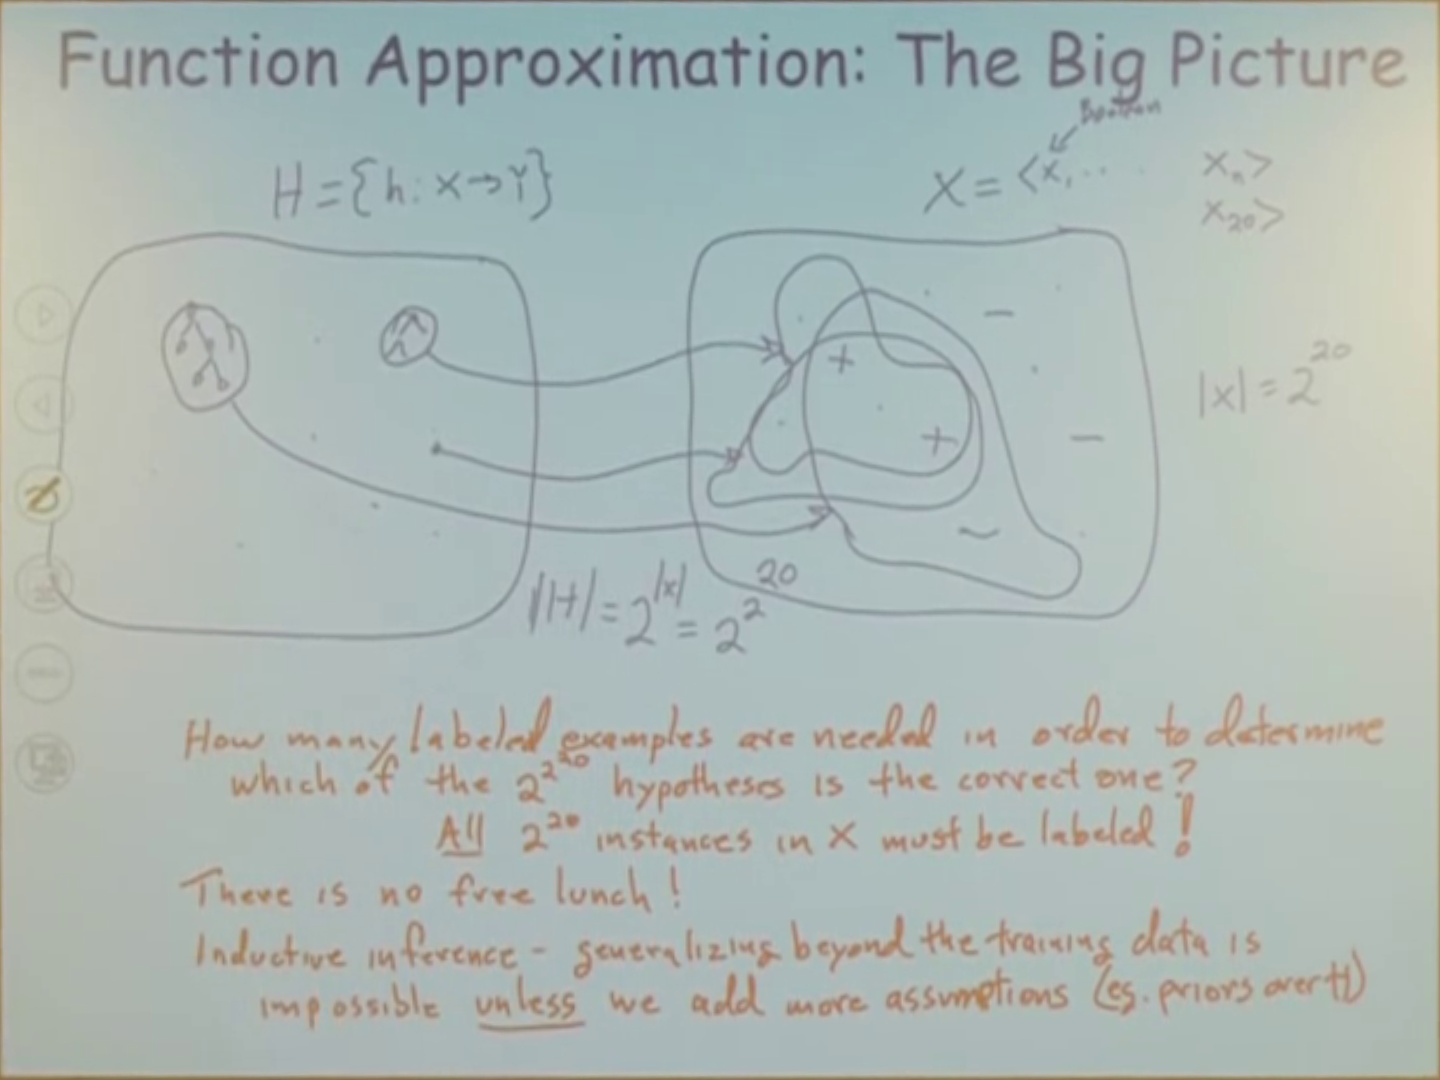 Function Approximation: The Big Picture
Boolean
H = {h: X→Y}
X = <x, ... xₙ>
x₂₀>
+
+
−
−
−
|X| = 2^20
|H| = 2^|X| = 2^2^20
How many labeled examples are needed in order to determine
which of the 2^2^20 hypotheses is the correct one?
All 2^20 instances in X must be labeled!
There is no free lunch!
Inductive inference - generalizing beyond the training data is
impossible unless we add more assumptions (eg. priors over H)